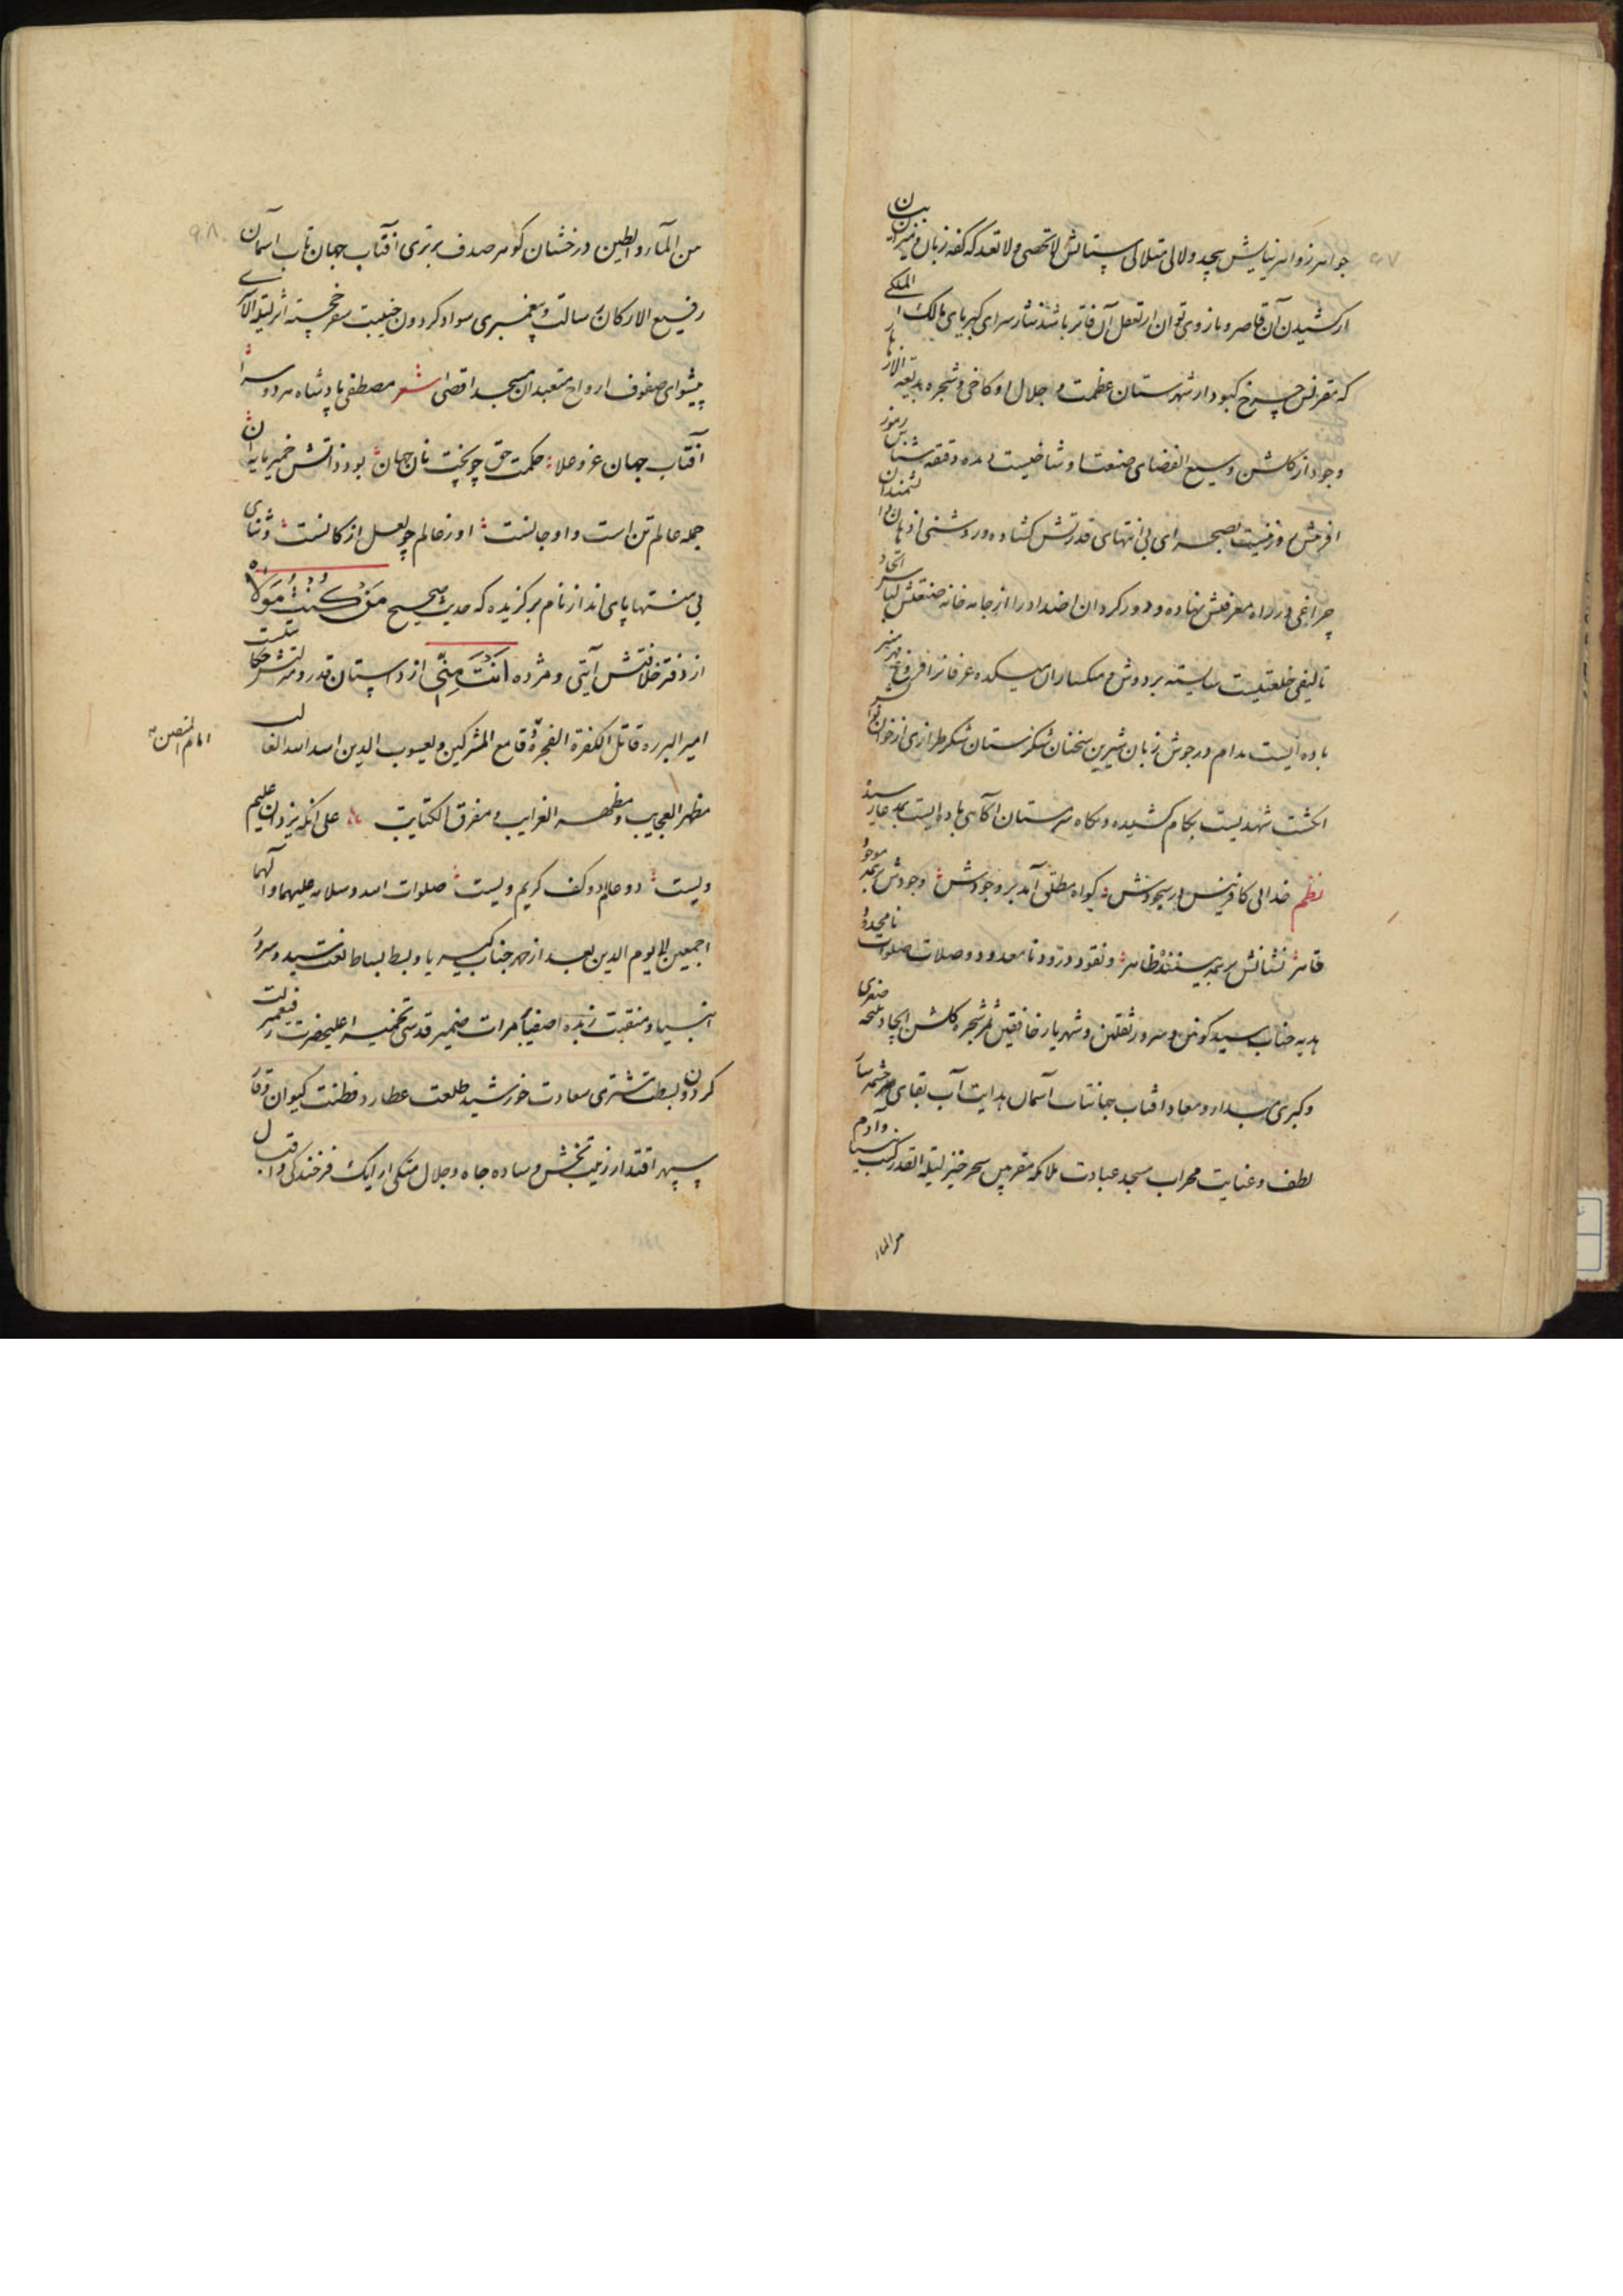 جواهر زواهر نیایش بیحد و لالی متلالی ستایش لا تحصی و لا تعد که کفه زبان و میزان بیان
از کشیدن آن قاصر و بازوی توان از تعقل آن فاتر باشد نثار سرای کبریای مالک الملکی
که مقرنس چرخ کبود از شهرستان عظمت و جلال او کاخی و شجره بدیعه الازهار
وجود از گلشن وسیع الفضای صنعت او شاخیست دیده دقیقه شناس رموز
آفرینش روزنیست بصحرای بی انتهای قدرتش گشاده و روشنی اذهان دانشمندان
چراغی در راه معرفتش نهاده و دور کردن اضداد را از جامه خانه صنعتش لباس اتحاد
تالیفی خلعتیست شایسته بر دوش و میکساران میکده عرفانرا فروغ مهر منیر
باده ایست مدام در جوش زبان شیرین سخنان شکرستان شکر طرازی از خوان
انگشت شهدیست بکام کشیده و نگاه سرمستان آگاهی باده ایست
نظم خدائی کافرینش در سجودش گواه مطلق آمد بر وجودش وجودش بر همه موجود
قاهر نشانش بر همه بیننده ظاهر و نقود درود نا معدود و صلات صلوات نامحدود
هدیه جناب سید کونین و سرور ثقلین و شهریار خافقین ثمر شجره گلشن ایجاد نتیجه صغری
و کبری مبدا و معاد افتاب جهانتاب آسمان هدایت آب بقای سرچشمه
لطف و عنایت محراب مسجد عبادت ملائکه مقربین سحر خیز لیلة القدر کنت نبیا و آدم
من الماء
من الماء و الطین درخشان گوهر صدف برتری آفتاب جهان تاب آسمان
رفیع الارکان رسالت و پیغمبری سواد گردون جنیبت سفر خجسته اثر لیلة الاسری
پیشوای صفوف ارواح متعبدان مسجد اقصی شعر مصطفی پادشاه هر دو سرا
آفتاب جهان عز و علا حکمت حق چو پخت نان جهان بود ذاتش خمیر مایه آن
جمله عالم تن است و او جانست او ز عالم چو لعل از کانست و ثنای
بی منتها پای انداز نام برگزیده که حدیث صحیح من کنت مولاه
از دفتر خلافتش آیتی و مژده انت منی از داستان قدر و منزلتش حکایتیست
امیر البرره قاتل الکفرة الفجرة قامع المشرکین و یعسوب الدین اسد الله الغالب
امام المتقین
مظهر العجایب و مظهر الغرایب و مفرق الکتایب علی آنکه یزدان علیم
ولیست دو عالم دو کف کریم ولیست صلوات الله و سلامه علیهما و آلهما
اجمعین الی یوم الدین بعد از حمد جناب کبریا و بسط بساط نعت سید و سرور
انبیا و منقبت زبده اصفیا مرآت ضمیر قدسی تخمیر اعلیحضرت رفیعمنزلت
گردون بسطت مشتری سعادت خورشید طلعت عطارد فطنت کیوان وقار
سپهر اقتدار زینت بخش وساده جاه و جلال متکی ارایک فرخندگی و اقبال